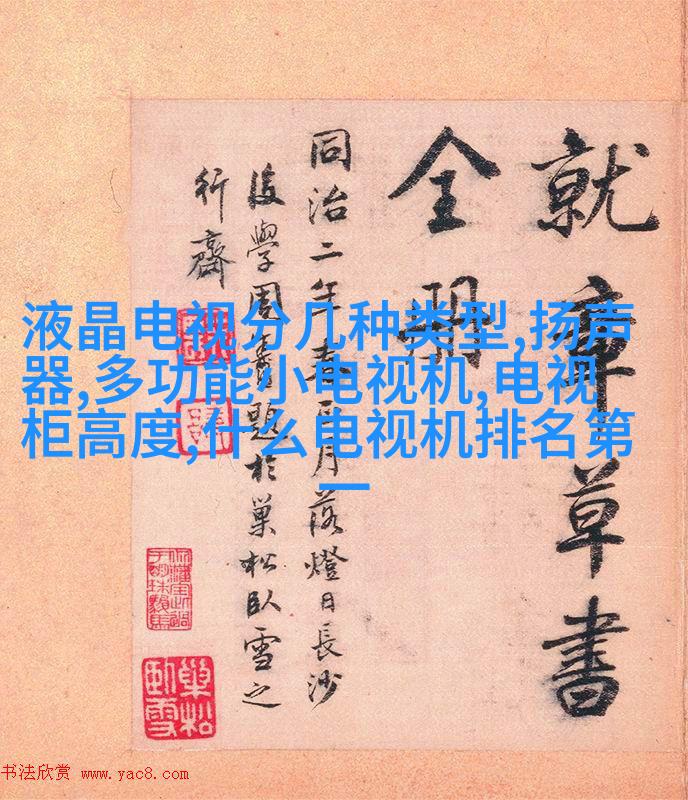 就章草書
全
同治二年春正月落燈日長沙
後學周壽昌題於巢松臥雪之
行齋
液晶电视分几种类型,扬声
器,多功能小电视机,电视
柜高度,什么电视机排名第
一
巢松
臥雪
书法欣赏 www.yac8.com